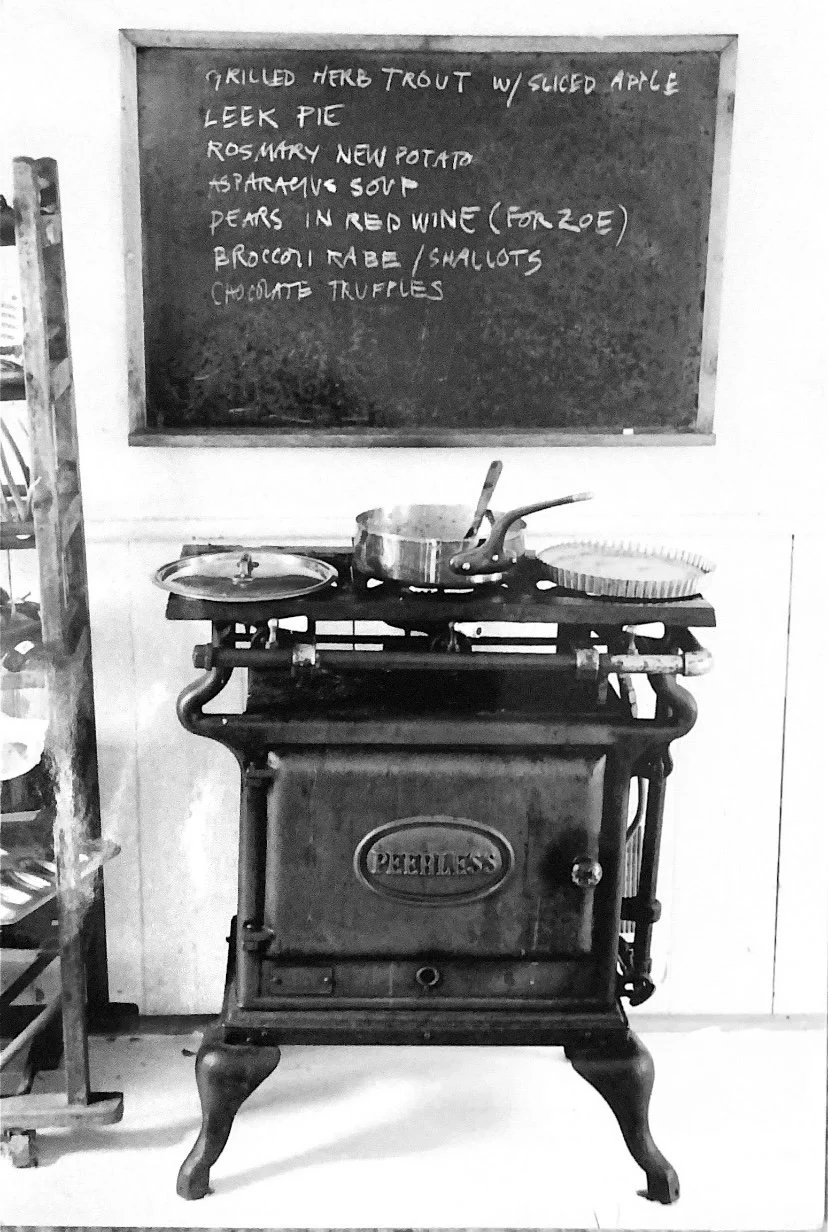 GRILLED HERB TROUT W/ SLICED APPLE
LEEK PIE
ROSMARY NEW POTATO
ASPARAGUS SOUP
PEARS IN RED WINE (FOR ZOE)
BROCCOLI RABE / SHALLOTS
CHOCOLATE TRUFFLES
PEERLESS